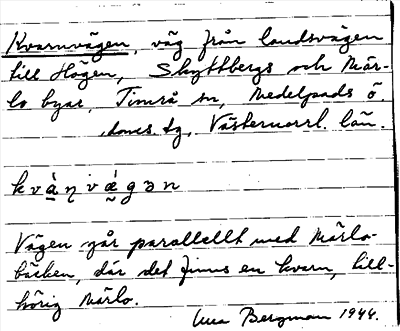 Kvarnvägen, väg från landsvägen
till Högen, Skyttbergs och Mär-
lo byar, Timrå sn, Medelpads ö.
doms. tg, Västernorrl. län.
kvà̱ɳvæ̀gən
Vägen går parallellt med Märlo-
bäcken, där det finns en kvarn, till-
hörig Märlo.
Bergman 1944.